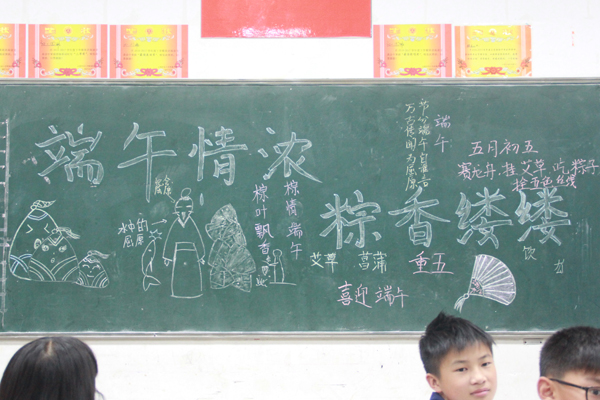 端午情浓
粽香缕缕
端午
节分端午自谁言
万古传闻为屈原
五月初五
赛龙舟 挂艾草 吃粽子
拴五色丝线
屈原
水中的
屈原
粽情端午
粽叶飘香
艾草 菖蒲 重五
喜迎端午